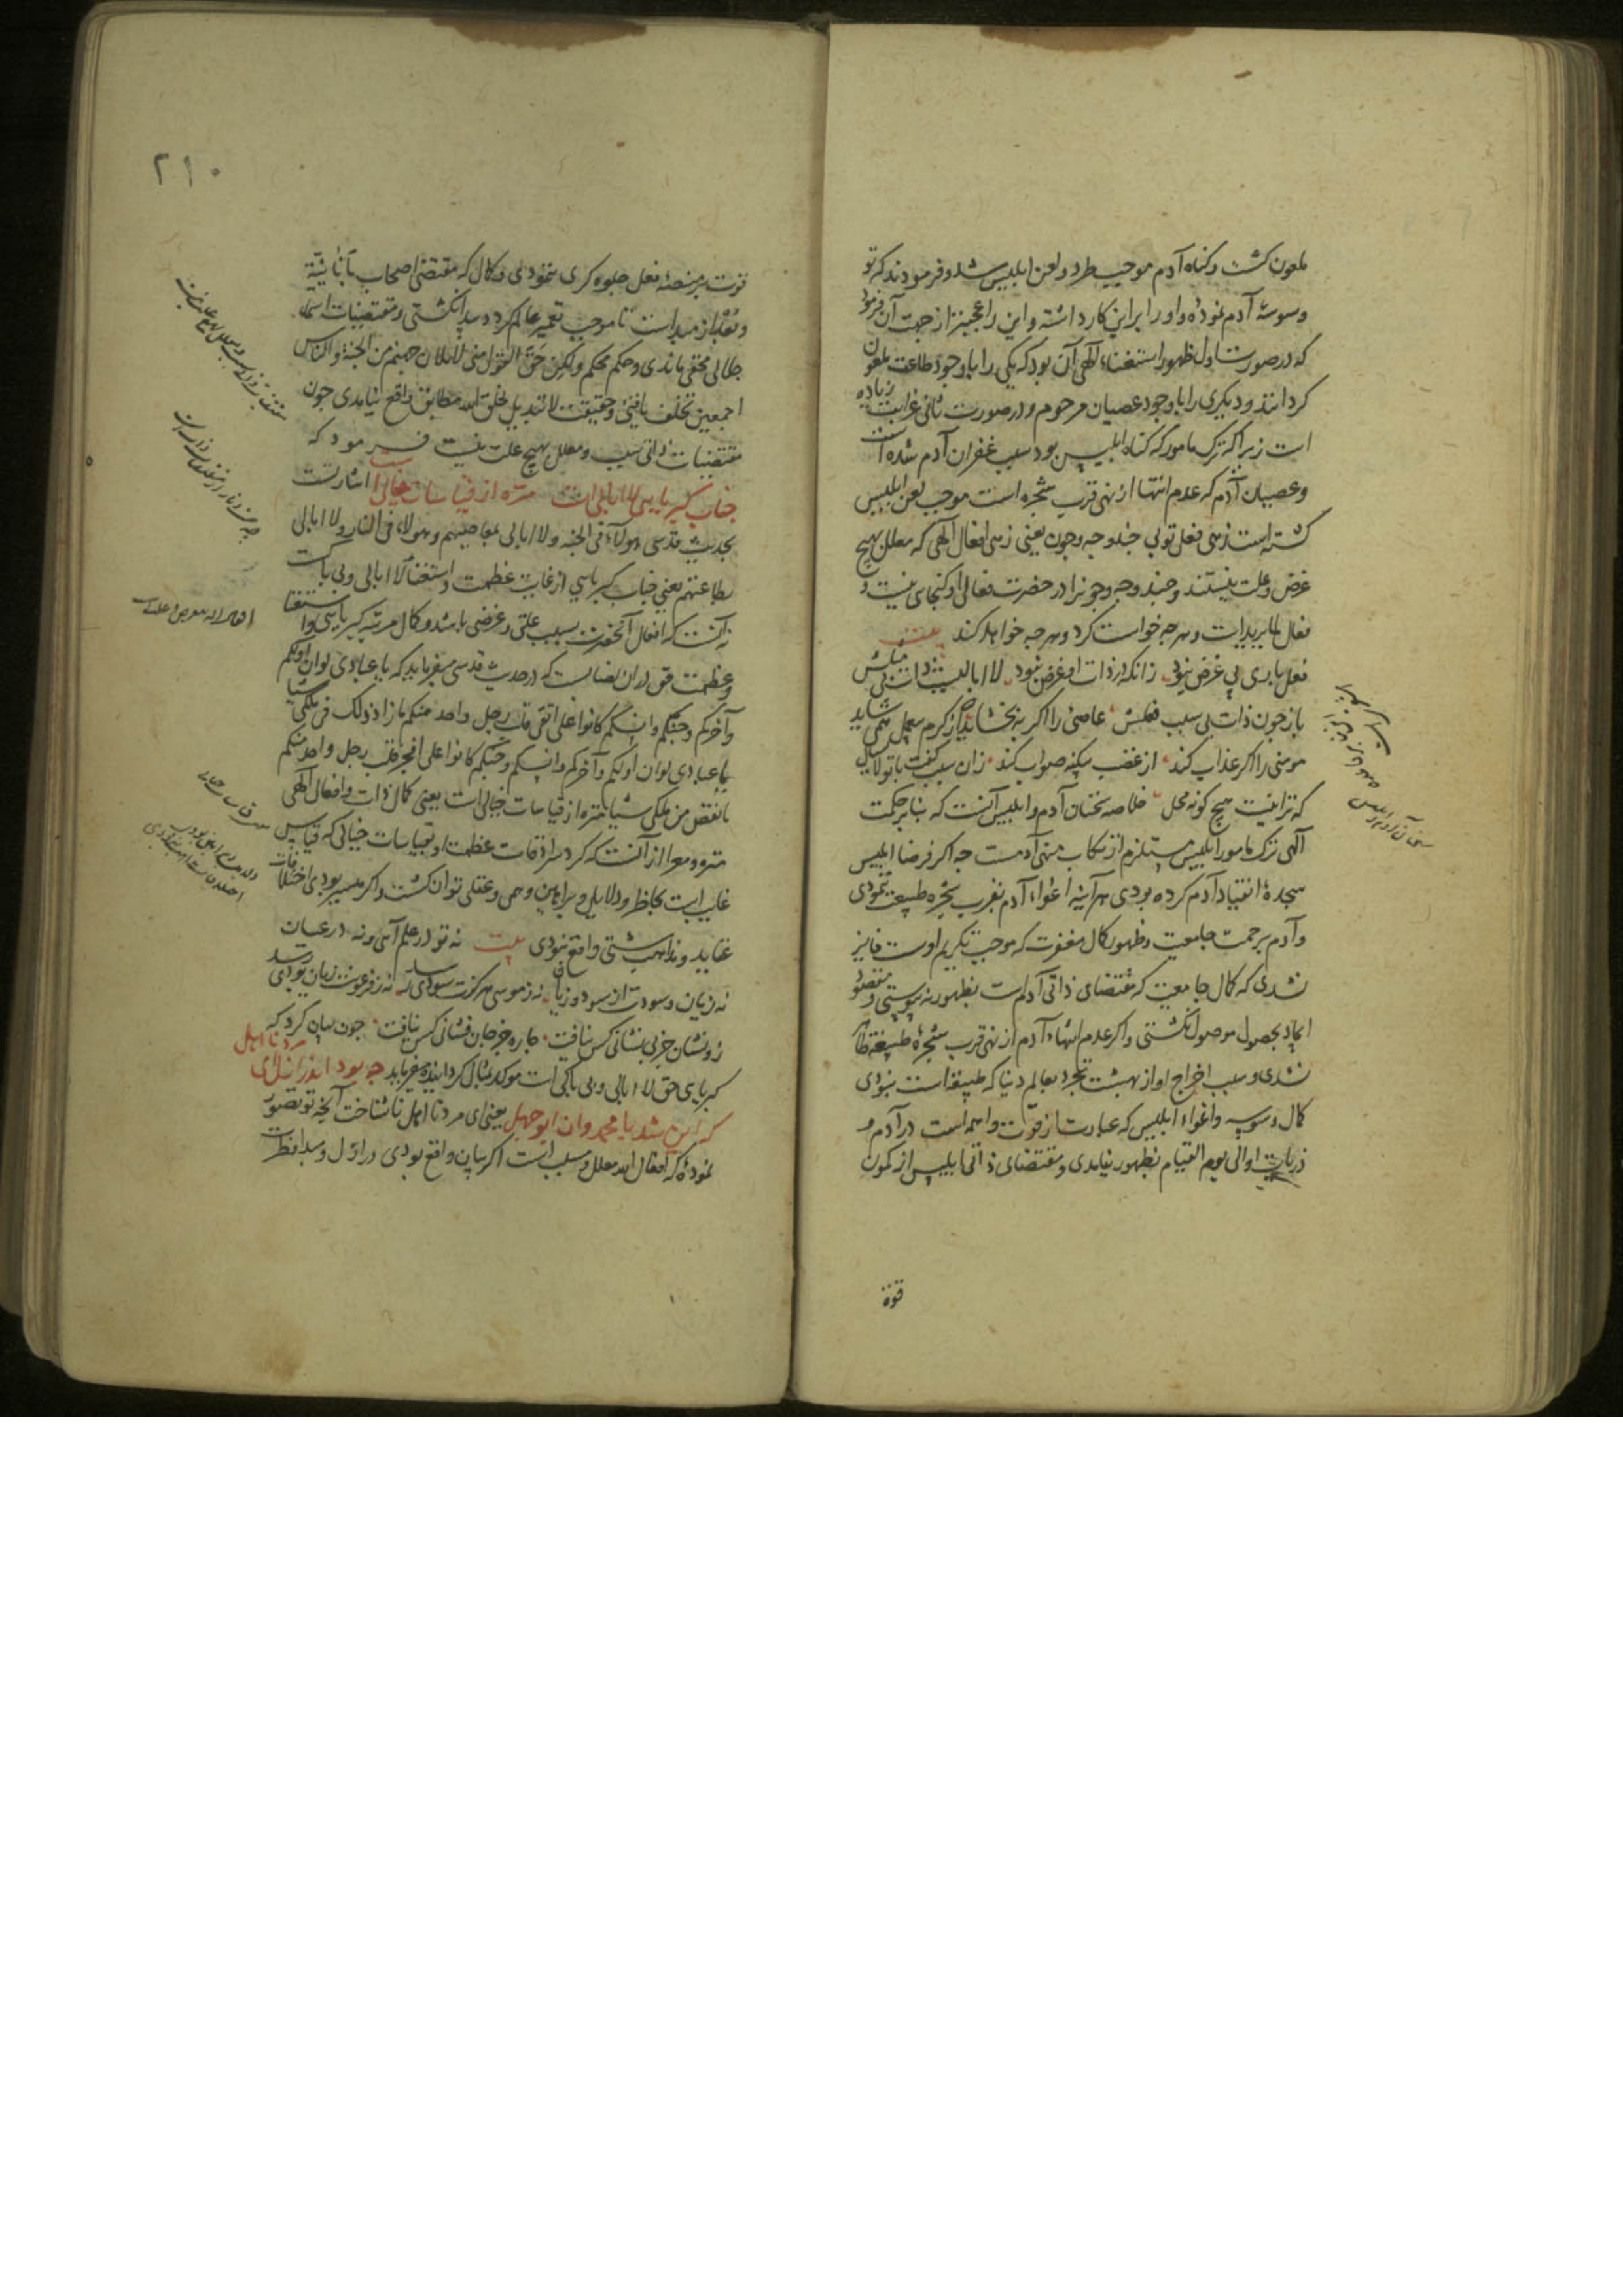 ملعون کشت و کناه آدم موجب طرد و لعن ابلیس شد و فرمودند که تو
وسوسهٔ آدم نمودهٔ و او را بر این کار داشته و این را عجبتر از جهت آن فرمود
که در صورت اول ظهور استغناء الهی آن بود که یکی را با وجود طاعت ملعون
کردانند و دیکری را با وجود عصیان مرحوم و در صورت ثانی غرابت زیاده
است زیرا که ترک مامور که کناه ابلیس بود سبب غفران آدم شده است
و عصیان آدم که عدم انتها از نهی قرب شجره است موجب لعن ابلیس
کشته است زهی فعل تو بی چند و چه و چون یعنی زهی افعال الهی که معلل بهیچ
غرض و علت نیستند و چند و چه و چونرا در حضرت فعالی او کنجای نیست و
فعال لما یرید است و هر چه خواست کرد و هر چه خواهد کند
فعل باری بی غرض بود زانکه در ذات او غرض نبود لا ابالیست
باز چون ذات بی سبب فعلش عاصی را اکر ببخشاید از کرم
مومنی را اکر عذاب کند از غضب صواب کند زان سبب کفت با تو لایسال
که ترا نیست هیچ کونه محل خلاصه سخنان آدم و ابلیس آنست که بنا بر حکمت
الهی ترک مامور ابلیس مستلزم ارتکاب منهی آدمست چه اکر فرضا ابلیس
سجدهٔ انقیاد آدم کرده بودی هر آینه اغواء آدم بقرب شجره طبیعت ننمودی
و آدم برحمت جامعیت و ظهور کمال مغفرت که موجب تکریم اوست فایز
نشدی که کمال جامعیت که مقتضای ذاتی آدم است بظهور نه پیوستی و مقصود
ایجاد بحصول موصول نکشتی و اکر عدم انتهاء آدم از نهی قرب شجرهٔ طبیعت
نشدی و سبب اخراج او از بهشت تجرد بعالم دنیا که طبیعة است نبودی
کمال وسوسه و اغواء ابلیس که عبارت از قوت واهمه است در آدم و
ذریات او الی یوم القیام بظهور نیامدی و مقتضای ذاتی ابلیس از کمون
قوة
۲۱۰
قوت بر منصهٔ فعل جلوه کری ننمودی و کمال که مقتضی اصحاب
و بعد از مبداست تا موجب تعمیر عالم کردد پیدا نکشتی و مقتضیات اسماء
جلالی مختفی ماندی و حکم محکم ولکن حق القول منی لاملان جهنم من الجنة والناس
اجمعین تخلف یافتی و حقیقت لا تبدیل لخلق الله مطابق واقع نیامدی چون
مقتضیات ذاتی سبب و معلل بهیچ علت نیست فرمود که
جناب کبریایی لا ابالی است منزه از قیاسات خیالی است اشارتست
بحدیث قدسی هولاء فی الجنة ولا ابالی بمعاصیهم وهولاء فی النار ولا ابالی
بطاعتهم یعنی جناب کبریایی از غایت عظمت و استغنا لا ابالی و بی باکست
نه آنست که افعال آنحضرت بسبب علتی و غرضی باشد و کمال مرتبه کبریایی و استغنا
و عظمت حق در آن فضاست که در حدیث قدسی میفرماید که یا عبادی لو ان اولکم
وآخرکم وجنکم وانسکم کانوا علی اتقی قلب رجل واحد منکم ما زاد ذلک فی ملکی شیا
یا عبادی لو ان اولکم وآخرکم وانسکم وجنکم کانوا علی افجر قلب رجل واحد منکم
ما نقص من ملکی شیا منزه از قیاسات خیالی است یعنی کمال ذات و افعال الهی
منزه و معرا از آنست که کرد سرادقات عظمت او بقیاسات خیالی که قیاس
غایب است و دلایل و براهین وهمی و عقلی توان کشت و اکر میسر بودی اختلافات
عقاید و مذاهب شتی واقع نبودی بیت نه تو در علم آیی و نه در عیان
نه زیان و سودت از سود و زیان نه ز موسی هرکزت سودی رسد نه ز فرعونت زیان بودی رسد
زو نشان جز بی نشانی کس نیافت چاره جز جان فشانی کس نیافت چون بیان کرد که
کبریای حق لا ابالی و بی باکی است موکد بمثال کردانیده میفرماید چه بود اندر ازل ای مرد نااهل
که این شد با محمد و آن ابوجهل یعنی ای مرد نااهل ناشناخت آنچه تو تصور
نمودهٔ که افعال الله معلل و سبب است اکر بیان واقع بودی در ازل و مبدا فطرت